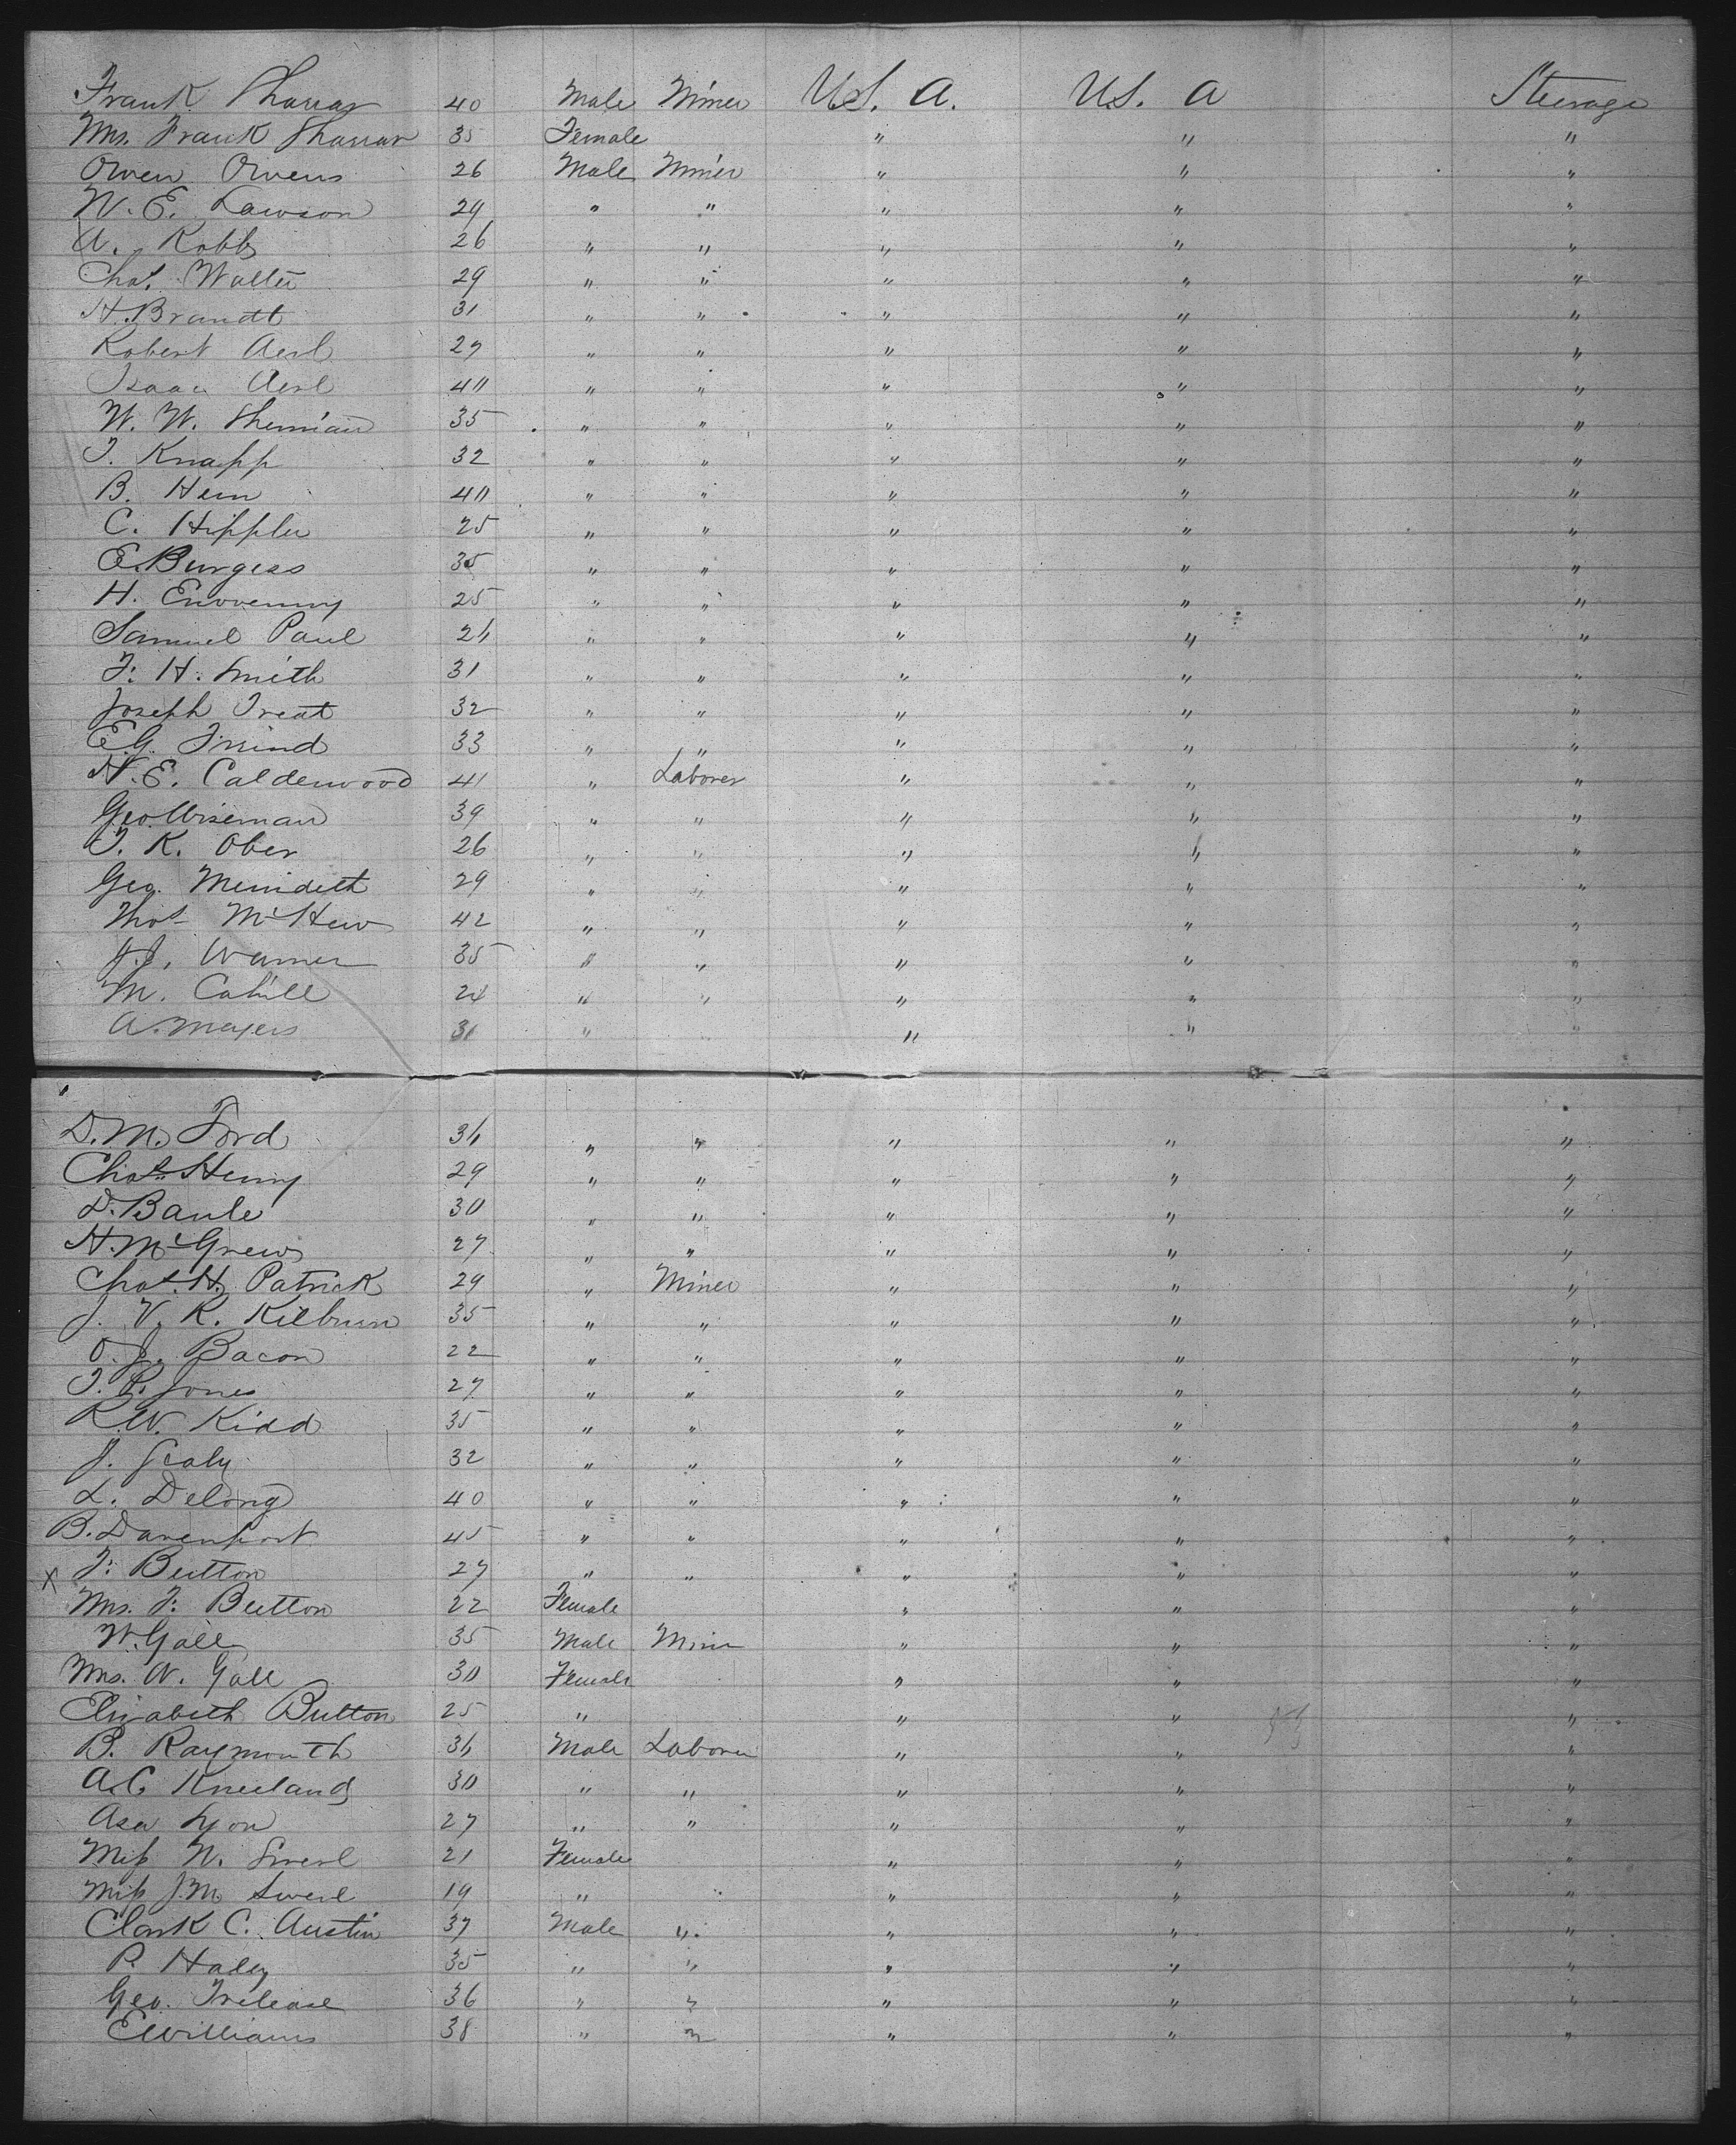 Frank Sharrar 40 Male Miner U.S. A. U.S. A Steerage
Mrs. Frank Sharrar 35 Female " " "
Owen Owens 26 Male Miner " " "
W. E. Lawson 29 " " " " "
A. Robb 26 " " " " "
Chas. Walter 29 " " " " "
H. Brandt 31 " " " " "
Robert 27 " " " " "
Isaac 40 " " " " "
W. W. Sherman 35 " " " " "
J. Knapp 32 " " " " "
B. Hein 40 " " " " "
C. Hippler 25 " " " " "
E. Burgess 35 " " " " "
H. 25 " " " " "
Samuel Paul 26 " " " " "
F. H. Smith 31 " " " " "
Joseph Treat 32 " " " " "
E.G. Friend 33 " " " " "
N. E. Calderwood 41 " Laborer " " "
Geo. Wiseman 39 " " " " "
J. K. Ober 26 " " " " "
Geo. Merrideth 29 " " " " "
Thos. 42 " " " " "
J.J. Warner 35 " " " " "
M. Cahill 24 " " " " "
A. Mayers 31 " " " "
D. M. Ford 36 " " " " "
Chas. Henry 29 " " " " "
D. Baule 30 " " " " "
H. McGrew 27 " " " " "
Chas. H. Patrick 29 " Miner " " "
J. V. R. Kilburn 35 " " " " "
O. J. Bacon 22 " " " " "
J. P. Jones 27 " " " " "
R.W. Kidd 35 " " " " "
J. 32 " " " " "
L. Delong 40 " " " " "
B. Davenport 45 " " " " "
x F. Button 27 " " " " "
Mrs. F. Button 22 Female " " "
W. Gall 35 Male Miner " " "
Mrs. W. Gall 30 Female " " "
Elizabeth Button 25 " " " "
B. Raymouth 36 Male Laborer " " "
A.C. Kneeland 30 " " " " "
Asa Lyon 27 " " " " "
Miss N. 21 Female " " "
Miss J.M. 19 " " " "
Clark C. Austin 37 Male " " " "
P. Haley 35 " " " " "
Geo. Trelease 36 " " " " "
E Williams 38 " " " " "